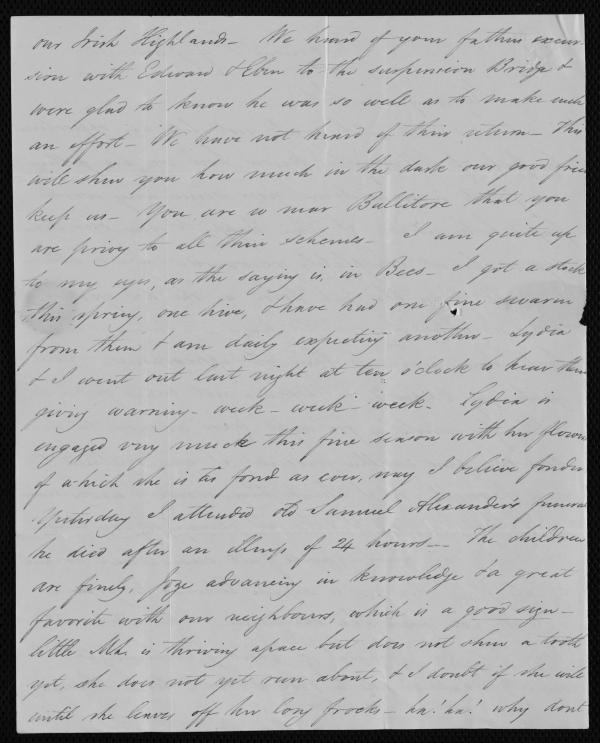 our Irish Highlands – We heard of your fathers excur-
sion with Edward & Eben to the suspension Bridge &
were glad to know he was so well as to make such
an effort – We have not heard of their return – This
will shew you how much in the dark our good frien
keep us – You are so near Ballitore that you
are privy to all their schemes – I am quite up
to my eyes, as the saying is, in Bees – I got a stock
this spring, one hive, & have had one fine swarm
from them & am daily expecting another – Lydia
& I went out last night at ten o'clock to hear them
giving warning – week – week – week – Lydia is
engaged very much this fine season with her flowers
of which she is as fond as ever, nay I believe fonder
Yesterday I attended old Samuel Alexander's funeral
he died after an illness of 24 hours – The children
are finely, advancing in knowledge & a great
favorite with our neighbours, which is a good sign –
little is thriving apace but does not shew a tooth
yet, she does not yet run about, & I doubt if she will
until she leaves off her long frocks – ha! ha! why dont